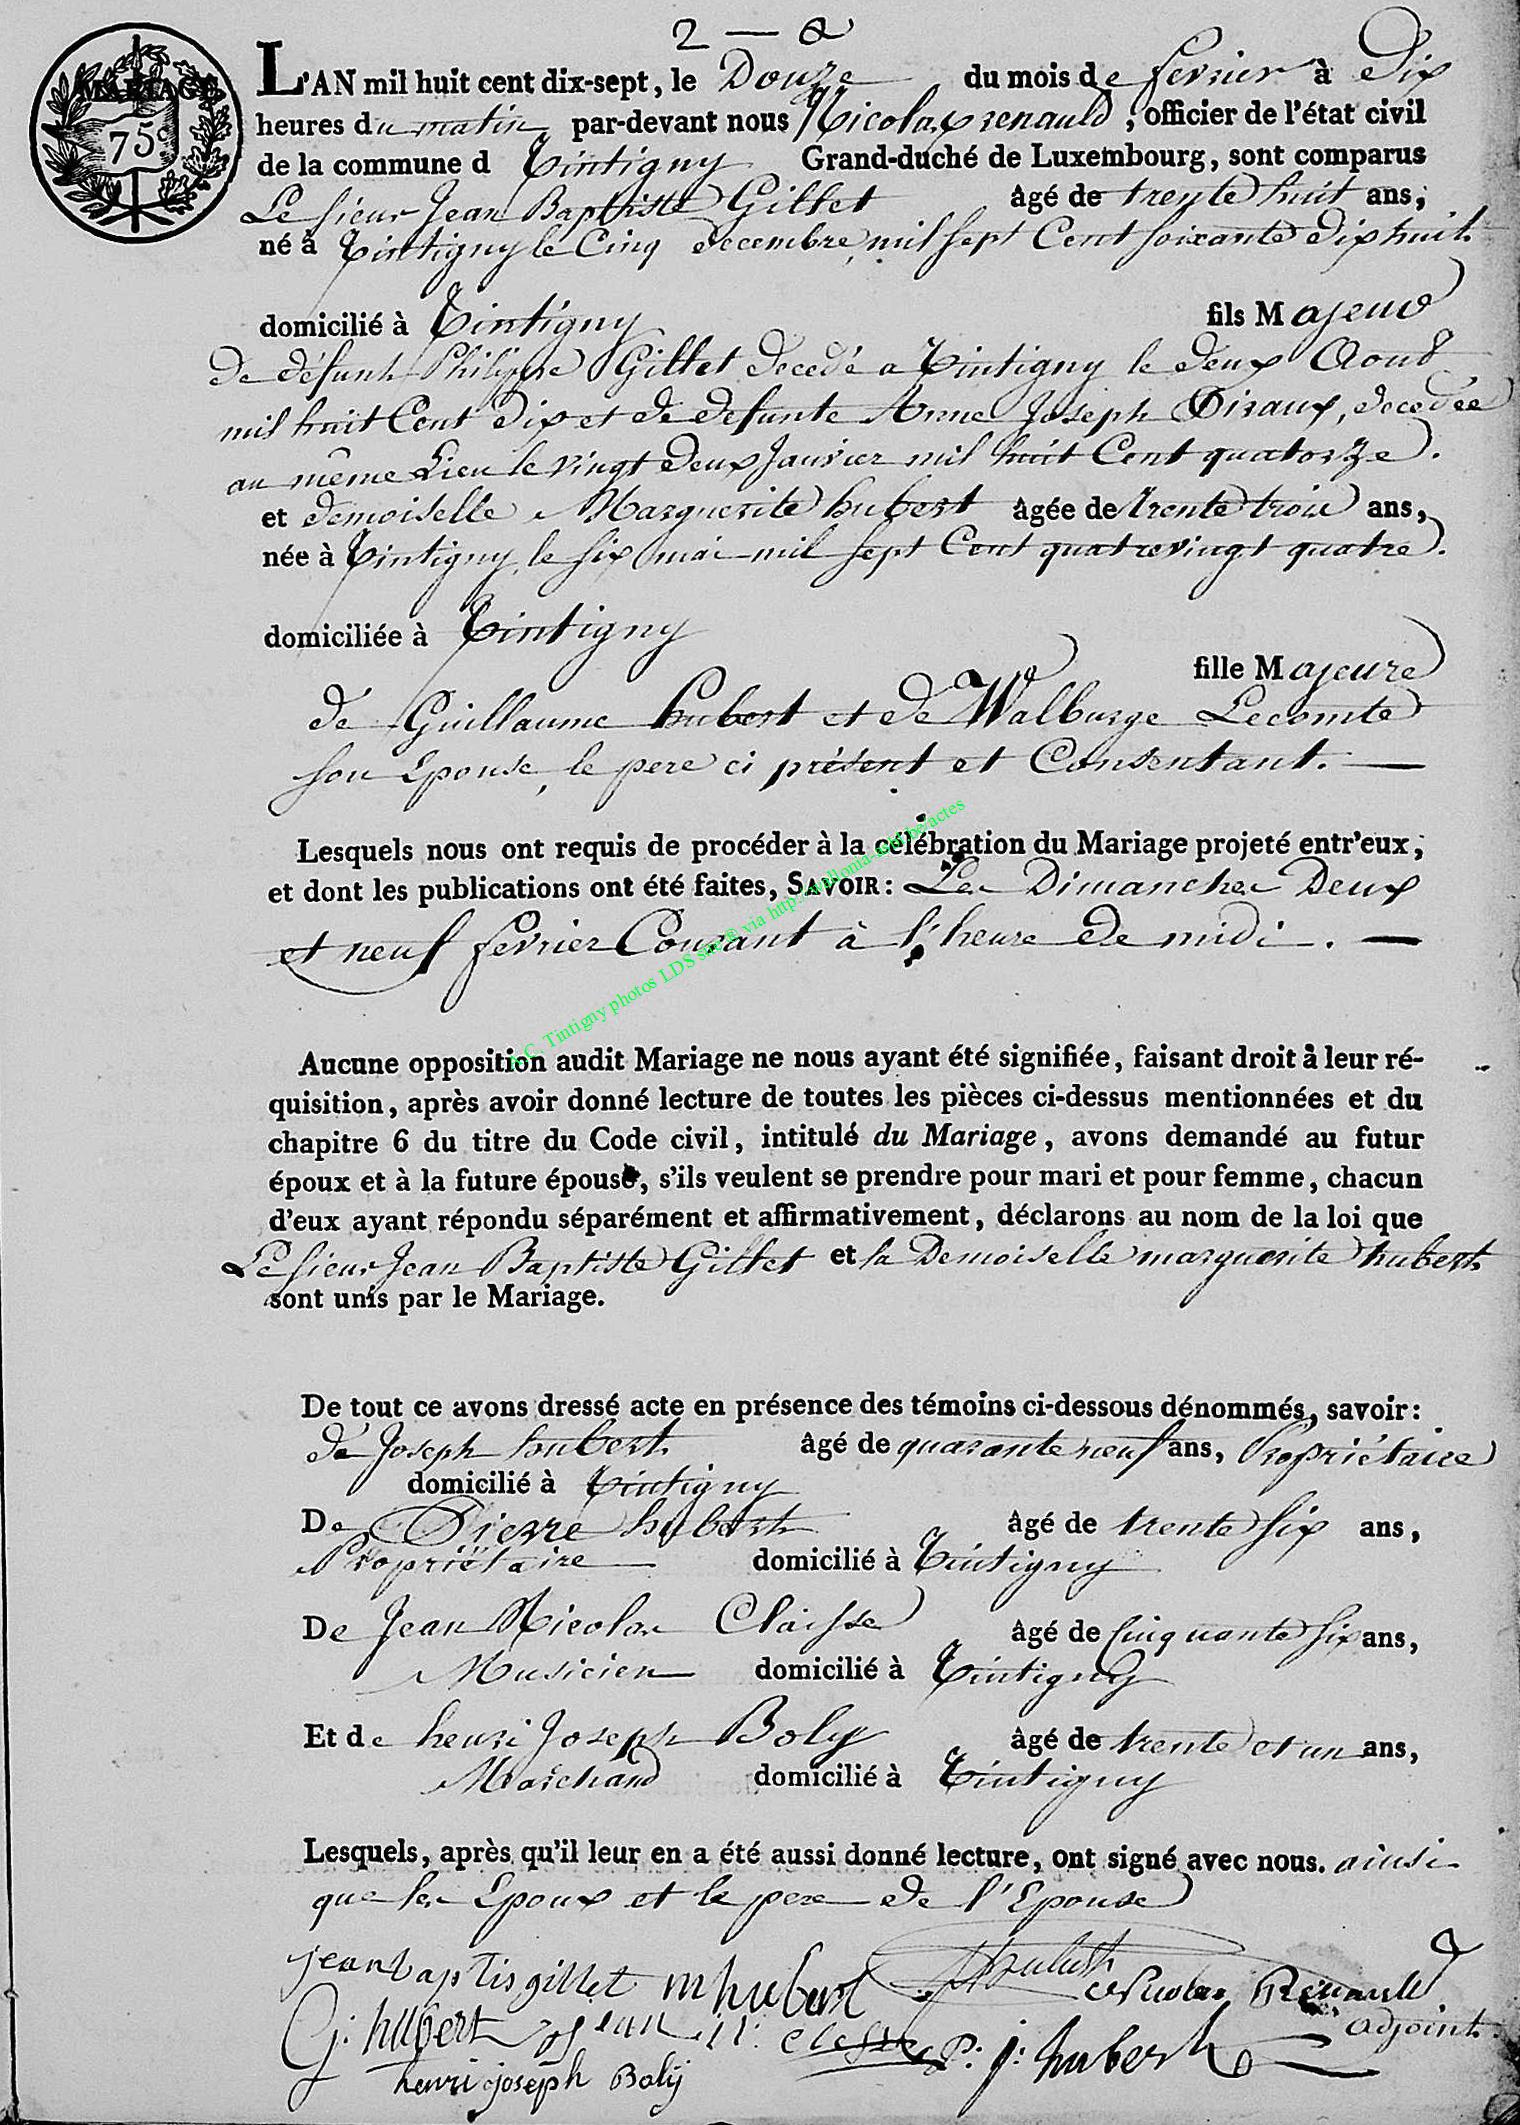 2 — a
MARIAGE
75 c
L'AN mil huit cent dix-sept, le Douze du mois de fevrier à Dix
heures du matin, par-devant nous Nicolas renauld, officier de l'état civil
de la commune d Tintigny Grand-duché de Luxembourg, sont comparus
Le sieur Jean Baptiste Gillet âgé de trente huit ans;
né à Tintigny le Cinq decembre, mil sept Cent soixante dix huit
domicilié à Tintigny fils Majeur
De défunt Philippe Gillet decedé a Tintigny le deux Aout
mil huit Cent dix et de defunte Anne Joseph Diraux, decedée
au même Lieu le vingt deux Janvier mil huit Cent quatorze.
et demoiselle Marguerite hubert âgée de trente trois ans,
née à Tintigny, le six mai mil sept Cent quatrevingt quatre.
domiciliée à Tintigny
fille Majeure
de Guillaume hubert et de Walburge Lecomte
son Epouse, le pere ci présent et Consentant. —
Lesquels nous ont requis de procéder à la célébration du Mariage projeté entr'eux;
et dont les publications ont été faites, SAVOIR: Les Dimanches Deux
et neuf fevrier Courant à l'heure de midi. —
A.C. Tintigny photos LDS via http://wallonia-asbl.be/actes
Aucune opposition audit Mariage ne nous ayant été signifiée, faisant droit à leur ré-
quisition, après avoir donné lecture de toutes les pièces ci-dessus mentionnées et du
chapitre 6 du titre du Code civil, intitulé du Mariage, avons demandé au futur
époux et à la future épouse, s'ils veulent se prendre pour mari et pour femme, chacun
d'eux ayant répondu séparément et affirmativement, déclarons au nom de la loi que
Le sieur Jean Baptiste Gillet et la Demoiselle marguerite hubert
sont unis par le Mariage.
De tout ce avons dressé acte en présence des témoins ci-dessous dénommés, savoir:
de Joseph hubert âgé de quarante neuf ans, Propriétaire
domicilié à Tintigny
De Pierre hubert âgé de trente six ans,
Propriétaire domicilié à Tintigny
De Jean Nicolas Claisse âgé de Cinquante six ans,
Musicien domicilié à Tintigny
Et de henri Joseph Boly âgé de trente et un ans,
Marchand domicilié à Tintigny
Lesquels, après qu'il leur en a été aussi donné lecture, ont signé avec nous. ainsi
que les Epoux et le pere de l'Epouse
jean baptis gillet m hubert Hubert Nicolas Renauld
G: hubert jean n: clesse P: j: hubert adjoint
henri joseph Bolÿ